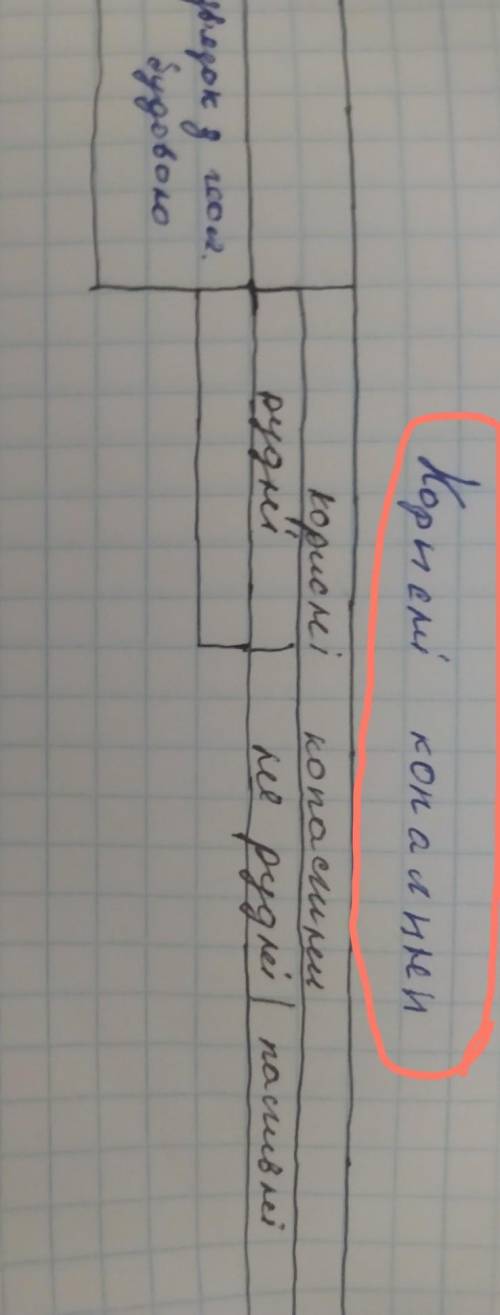 Корисні копалини
корисні копалини
рудні не рудні паливні
з геол.
будовою